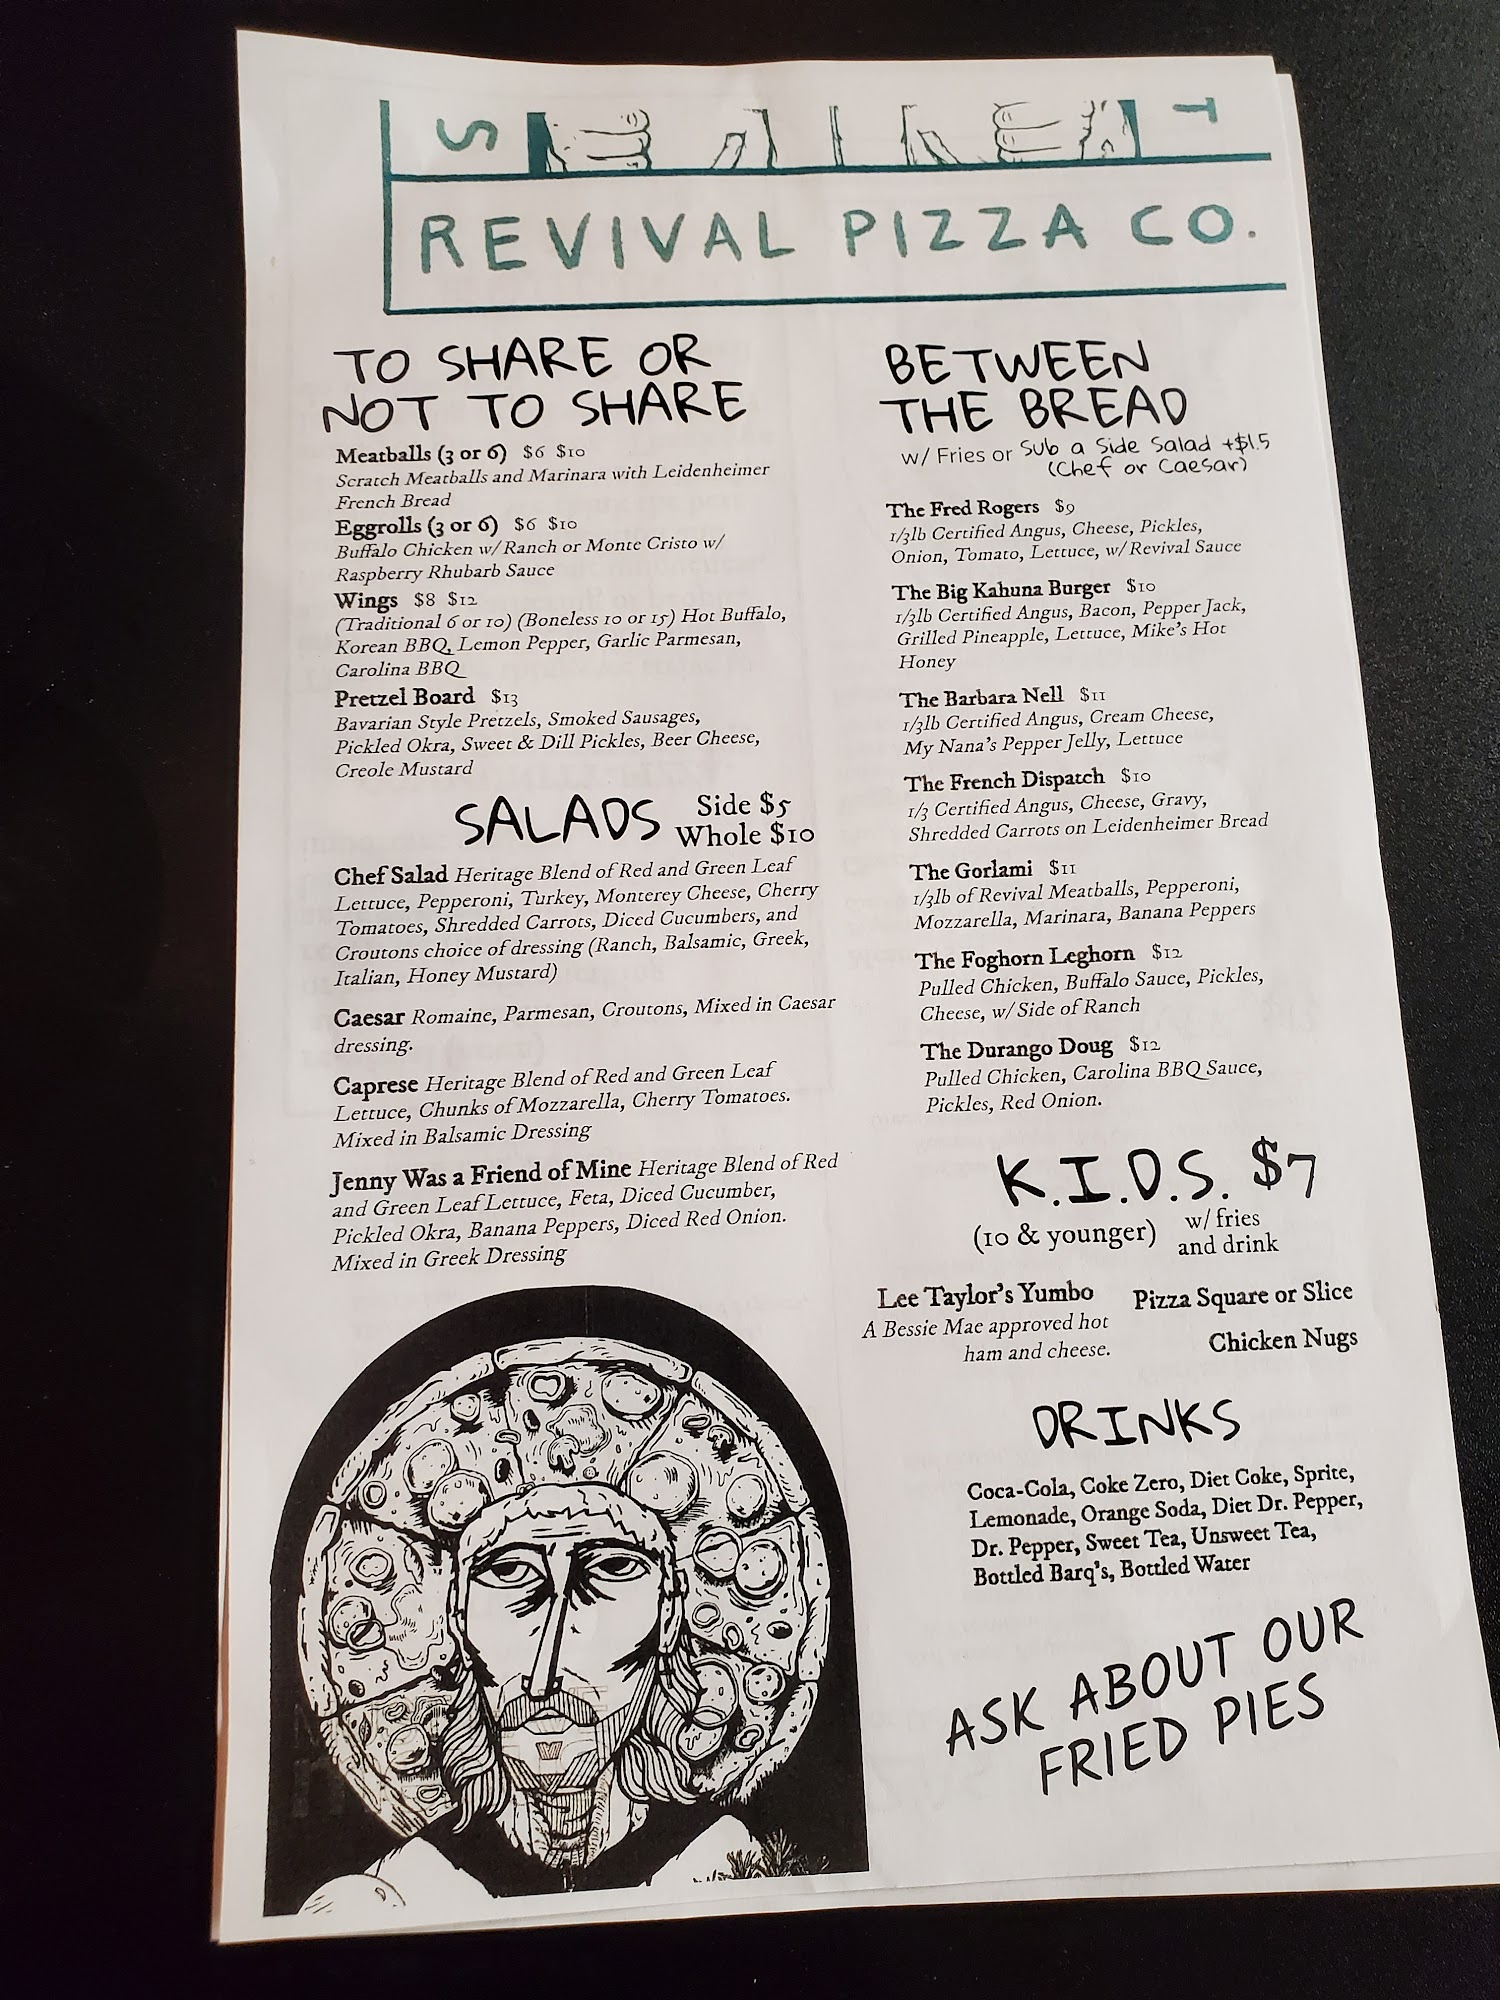 S T
REVIVAL PIZZA CO.
TO SHARE OR
NOT TO SHARE
Meatballs (3 or 6) $6 $10
Scratch Meatballs and Marinara with Leidenheimer
French Bread
Eggrolls (3 or 6) $6 $10
Buffalo Chicken w/ Ranch or Monte Cristo w/
Raspberry Rhubarb Sauce
Wings $8 $12
(Traditional 6 or 10) (Boneless 10 or 15) Hot Buffalo,
Korean BBQ, Lemon Pepper, Garlic Parmesan,
Carolina BBQ
Pretzel Board $13
Bavarian Style Pretzels, Smoked Sausages,
Pickled Okra, Sweet & Dill Pickles, Beer Cheese,
Creole Mustard
SALADS Side $5
Whole $10
Chef Salad Heritage Blend of Red and Green Leaf
Lettuce, Pepperoni, Turkey, Monterey Cheese, Cherry
Tomatoes, Shredded Carrots, Diced Cucumbers, and
Croutons choice of dressing (Ranch, Balsamic, Greek,
Italian, Honey Mustard)
Caesar Romaine, Parmesan, Croutons, Mixed in Caesar
dressing.
Caprese Heritage Blend of Red and Green Leaf
Lettuce, Chunks of Mozzarella, Cherry Tomatoes.
Mixed in Balsamic Dressing
Jenny Was a Friend of Mine Heritage Blend of Red
and Green Leaf Lettuce, Feta, Diced Cucumber,
Pickled Okra, Banana Peppers, Diced Red Onion.
Mixed in Greek Dressing
BETWEEN
THE BREAD
w/ Fries or Sub a Side Salad +$1.5
(Chef or Caesar)
The Fred Rogers $9
1/3lb Certified Angus, Cheese, Pickles,
Onion, Tomato, Lettuce, w/ Revival Sauce
The Big Kahuna Burger $10
1/3lb Certified Angus, Bacon, Pepper Jack,
Grilled Pineapple, Lettuce, Mike's Hot
Honey
The Barbara Nell $11
1/3lb Certified Angus, Cream Cheese,
My Nana's Pepper Jelly, Lettuce
The French Dispatch $10
1/3 Certified Angus, Cheese, Gravy,
Shredded Carrots on Leidenheimer Bread
The Gorlami $11
1/3lb of Revival Meatballs, Pepperoni,
Mozzarella, Marinara, Banana Peppers
The Foghorn Leghorn $12
Pulled Chicken, Buffalo Sauce, Pickles,
Cheese, w/ Side of Ranch
The Durango Doug $12
Pulled Chicken, Carolina BBQ Sauce,
Pickles, Red Onion.
K.I.D.S. $7
(10 & younger) w/ fries
and drink
Lee Taylor's Yumbo
A Bessie Mae approved hot
ham and cheese.
Pizza Square or Slice
Chicken Nugs
DRINKS
Coca-Cola, Coke Zero, Diet Coke, Sprite,
Lemonade, Orange Soda, Diet Dr. Pepper,
Dr. Pepper, Sweet Tea, Unsweet Tea,
Bottled Barq's, Bottled Water
ASK ABOUT OUR
FRIED PIES